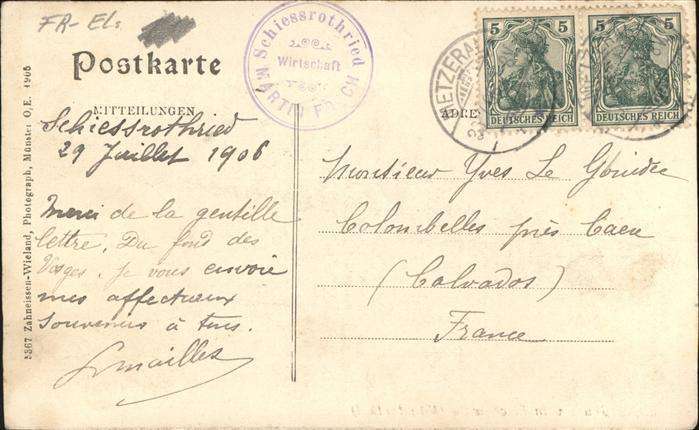 FR- El:
Postkarte
MITTEILUNGEN
Schiessrothried
Wirtschaft
MARTIN
5
5
DEUTSCHES REICH
DEUTSCHES REICH
METZERAL
ADRE
Schiessrothried
29 Juillet 1906
Merci de la gentille
lettre. Du fond des
Vosges. je vous envoie
mes affectueux
souvenirs à tous.
Monsieur Yves Le
Colombelles près Caen
(Calvados)
France
5367 Zahneissen-Wieland, Photograph, Münster O.E. 1905